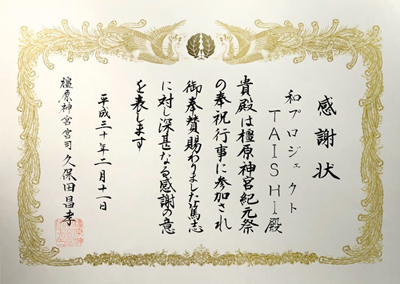 感謝状
和プロジェクト
TAISHI殿
貴殿は橿原神宮紀元祭
の奉祝行事に参加され
御奉賛賜わりました篤志
に対し深甚なる感謝の意
を表します
平成三十年二月十一日
橿原神宮宮司 久保田昌孝